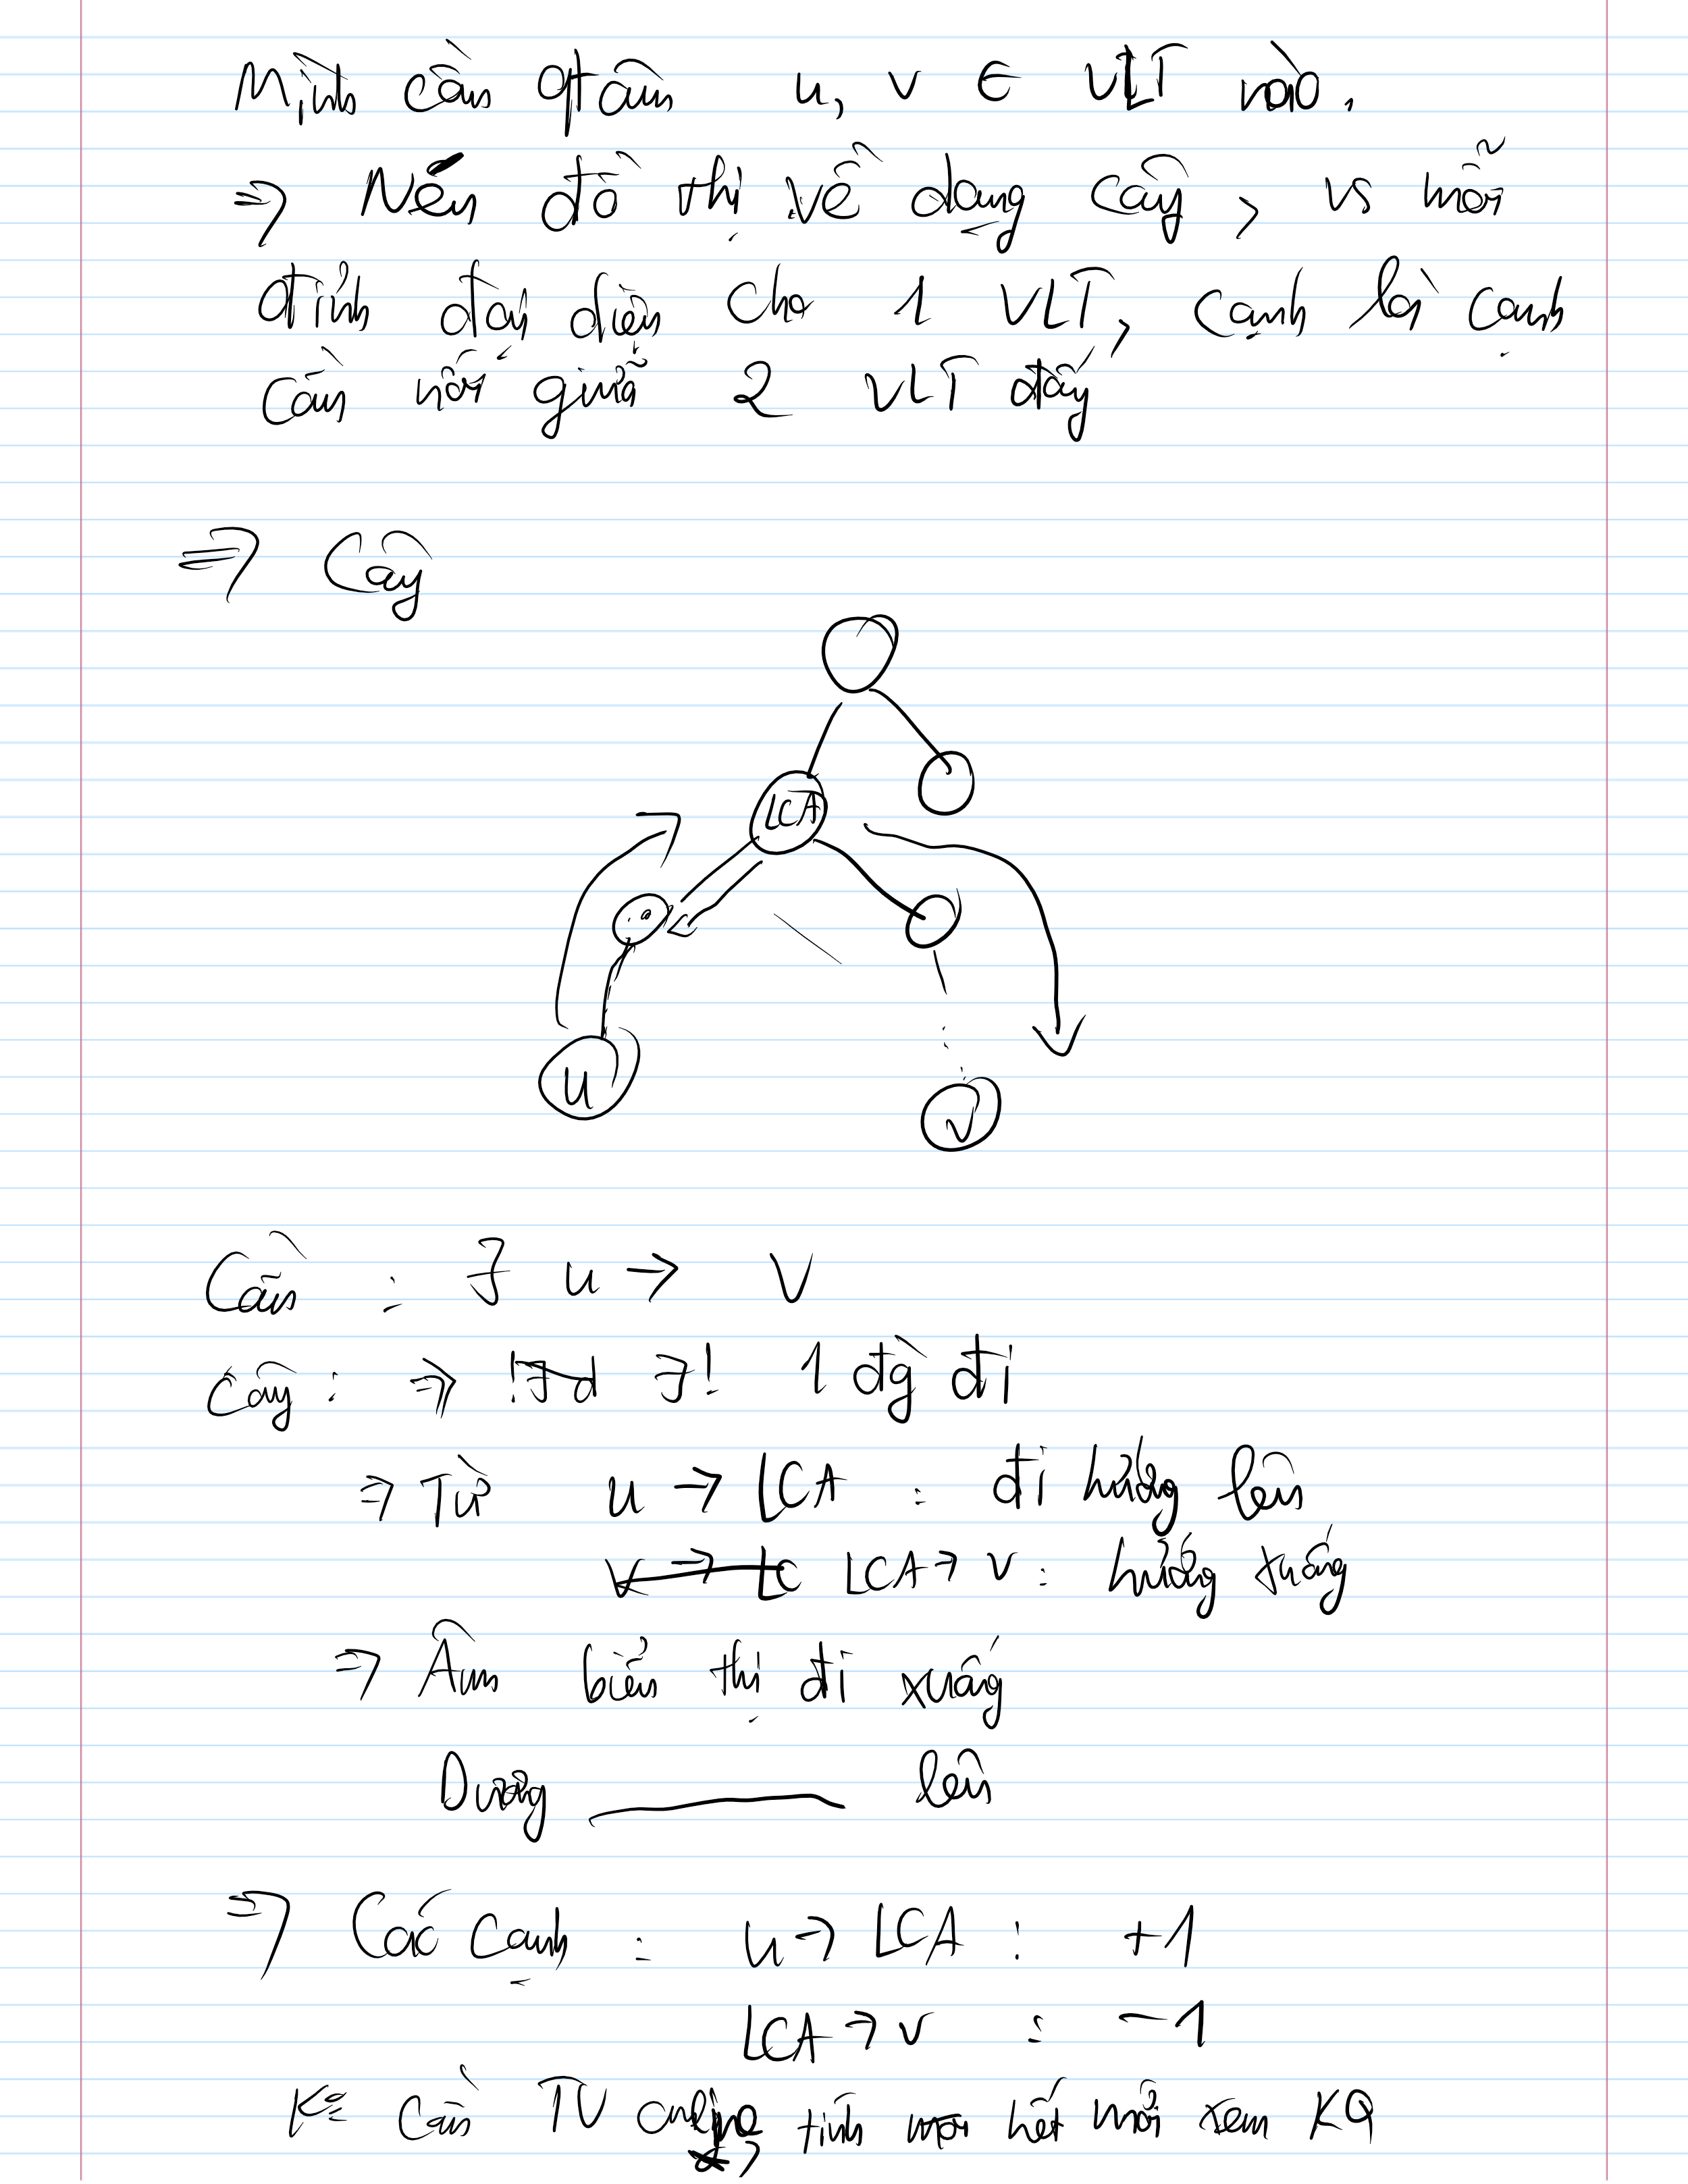 Mình cần qtâm u, v ∈ VLT nào.
⇒ Nén đồ thị về dạng cây, vs mỗi
đỉnh đại diện cho 1 VLT, cạnh là cạnh
cầu nối giữa 2 VLT đấy
⇒ Cây
LCA
u
v
Cần : ∃ u → v
Cây : ⇒ ∃! 1 đg đi
⇒ Từ u → LCA : đi hướng lên
LCA → v : hướng xuống
⇒ Âm biểu thị đi xuống
Dương ——— lên
⇒ Các cạnh : u → LCA : +1
LCA → v : -1
Cần TV online, tính hết mới xem KQ